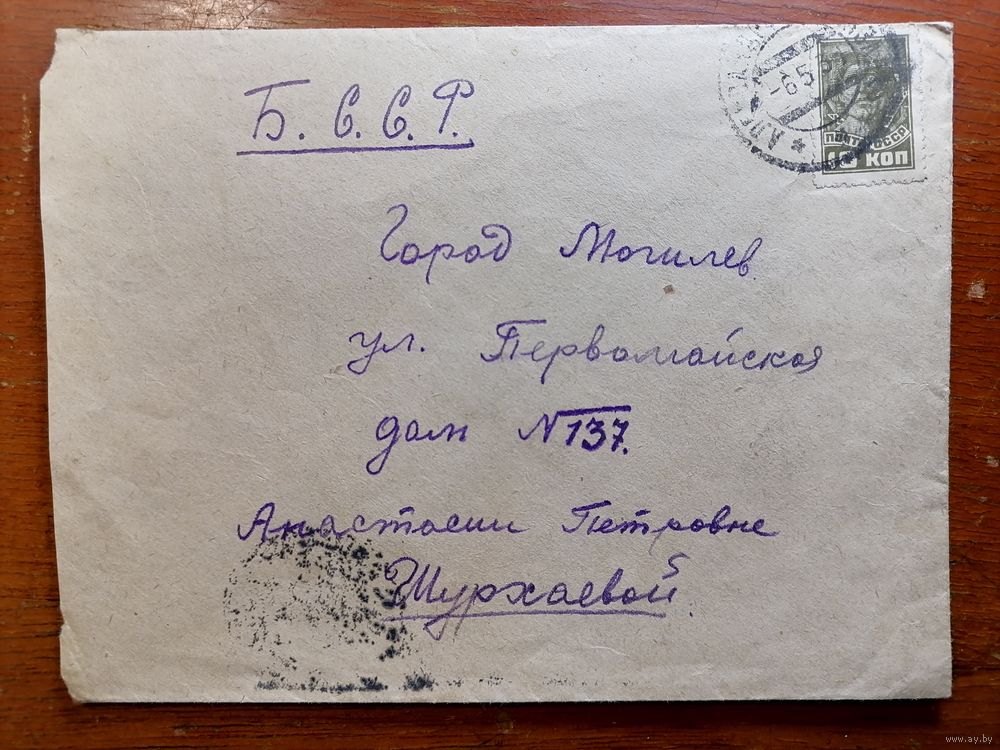 Б. С. С. Р.
Город Могилев
ул. Первомайская
дом N 137.
Анастасии Петровне
Шурхаевой.
-6 5
ПОЧТА СССР
10 КОП
www.ay.by